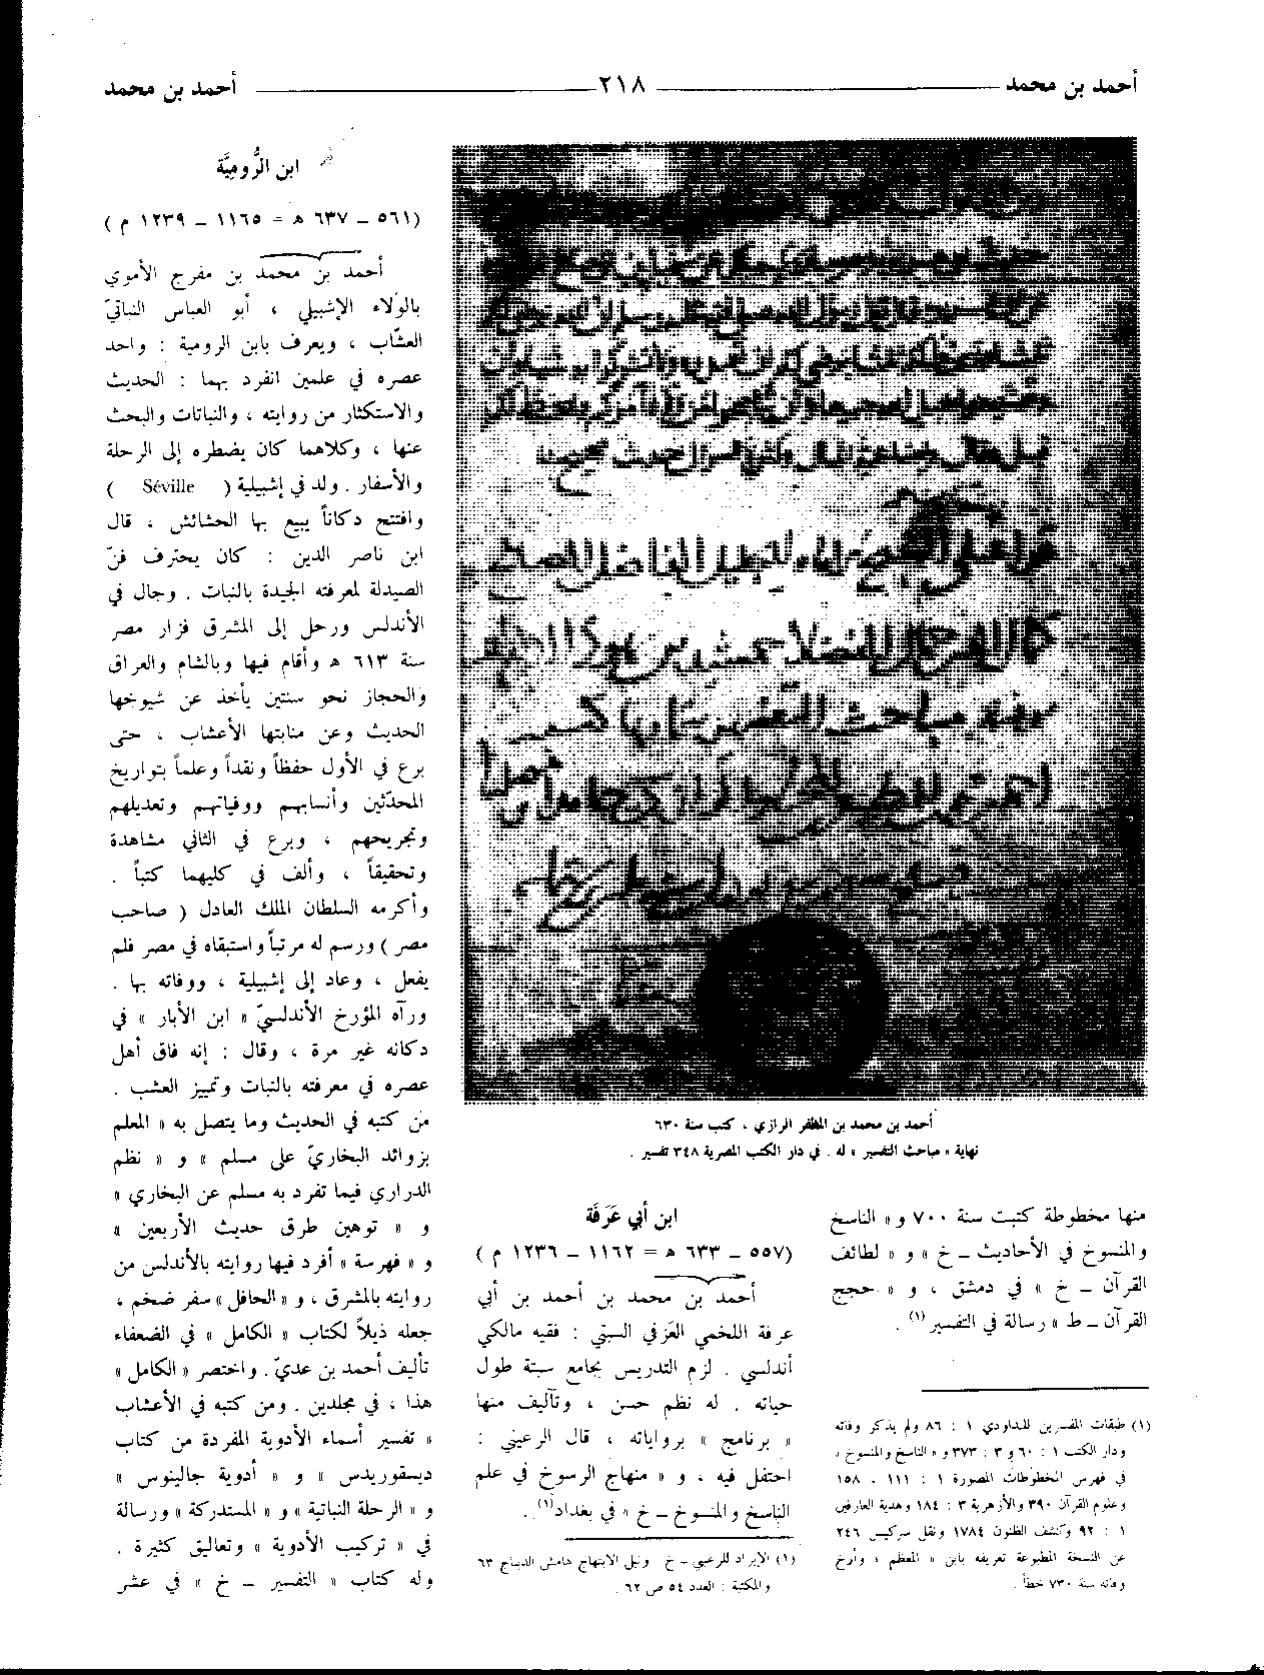 أحمد بن محمد
٢١٨
أحمد بن محمد
أحمد بن محمد بن المظفر الرازي ، كتب سنة ٦٣٠
نهاية « مباحث التفسير » له . في دار الكتب المصرية ٣٤٨ تفسير .
منها مخطوطة كتبت سنة ٧٠٠ و « الناسخ
والمنسوخ في الأحاديث ــ خ » و « لطائف
القرآن ــ خ » في دمشق ، و « حجج
القرآن ــ ط » رسالة في التفسير (١) .
(١) طبقات المفسرين للداودي ١ : ٨٦ ولم يذكر وفاته
ودار الكتب ١ : ٦٠ و ٣ : ٣٧٣ و « الناسخ والمنسوخ »
في فهرس المخطوطات المصورة ١ : ١١١ . ١٥٨
وعلوم القرآن ٣٩٠ والأزهرية ٣ : ١٨٤ وهدية العارفين
١ : ٩٢ وكشف الظنون ١٧٨٤ ونقل سركيس ٢٤٦
عن النسخة المطبوعة تعريفه بابن « المعظم » وأرخ
وفاته سنة ٧٣٠ خطأ .
ابن أبي عَزَفَة
(٥٥٧ ــ ٦٣٣ ه = ١١٦٢ ــ ١٢٣٦ م )
أحمد بن محمد بن أحمد بن أبي
عزفة اللخمي العَزَفي السبتي : فقيه مالكي
أندلسي . لزم التدريس بجامع سبتة طول
حياته . له نظم حسن ، وتآليف منها
« برنامج » بروياته ، قال الرعيني :
احتفل فيه ، و « منهاج الرسوخ في علم
الناسخ والمنسوخ ــ خ » في بغداد (١) .
(١) الإيراد للرعيني ــ خ ونيل الابتهاج هامش الديباج ٦٣
والمكتبة : العدد ٥٤ ص ٦٢ .
ابن الرُّومِيَّة
(٥٦١ ــ ٦٣٧ ه = ١١٦٥ ــ ١٢٣٩ م )
أحمد بن محمد بن مفرج الأموي
بالولاء الإشبيلي ، أبو العباس النباتيّ
العشّاب ، ويعرف بابن الرومية : واحد
عصره في علمين انفرد بهما : الحديث
والاستكثار من روايته ، والنباتات والبحث
عنها ، وكلاهما كان يضطره إلى الرحلة
والأسفار . ولد في إشبيلية ( Séville )
وافتتح دكاناً يبيع بها الحشائش ، قال
ابن ناصر الدين : كان يحترف فنّ
الصيدلة لمعرفته الجيدة بالنبات . وجال في
الأندلس ورحل إلى المشرق فزار مصر
سنة ٦١٣ ه وأقام فيها وبالشام والعراق
والحجاز نحو سنتين يأخذ عن شيوخها
الحديث وعن منابتها الأعشاب ، حتى
برع في الأول حفظاً ونقداً وعلماً بتواريخ
المحدّثين وأنسابهم ووفياتهم وتعديلهم
وتجريحهم ، وبرع في الثاني مشاهدة
وتحقيقاً ، وألف في كليهما كتباً .
وأكرمه السلطان الملك العادل ( صاحب
مصر ) ورسم له مرتباً واستبقاه في مصر فلم
يفعل ، وعاد إلى إشبيلية ، ووفاته بها .
ورآه المؤرخ الأندلسيّ « ابن الأبار » في
دكانه غير مرة ، وقال : إنه فاق أهل
عصره في معرفته بالنبات وتمييز العشب .
من كتبه في الحديث وما يتصل به « المعلم
بزوائد البخاريّ على مسلم » و « نظم
الدراري فيما تفرد به مسلم عن البخاري »
و « توهين طرق حديث الأربعين »
و « فهرسة » أفرد فيها روايته بالأندلس من
روايته بالمشرق ، و « الحافل » سفر ضخم ،
جعله ذيلاً لكتاب « الكامل » في الضعفاء
تأليف أحمد بن عديّ . واختصر « الكامل »
هذا ، في مجلدين . ومن كتبه في الأعشاب
« تفسير أسماء الأدوية المفردة من كتاب
ديسقوريدس » و « أدوية جالينوس »
و « الرحلة النباتية » و « المستدركة » ورسالة
في « تركيب الأدوية » وتعاليق كثيرة .
وله كتاب « التفسير ــ خ » في عشر